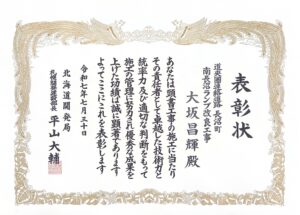 表彰状
道央圏連絡道路 長沼町
南長沼ランプ改良工事
大坂昌輝殿
あなたは頭書工事の施工に当たり
その責任者として卓越した技術力と
統率力及び適切な判断をもって
施工の管理に努力され優秀な成果を
上げた功績は誠に顕著であります
よってここにこれを表彰します
令和七年七月三十日
北海道開発局
札幌開発建設部長 平山大輔